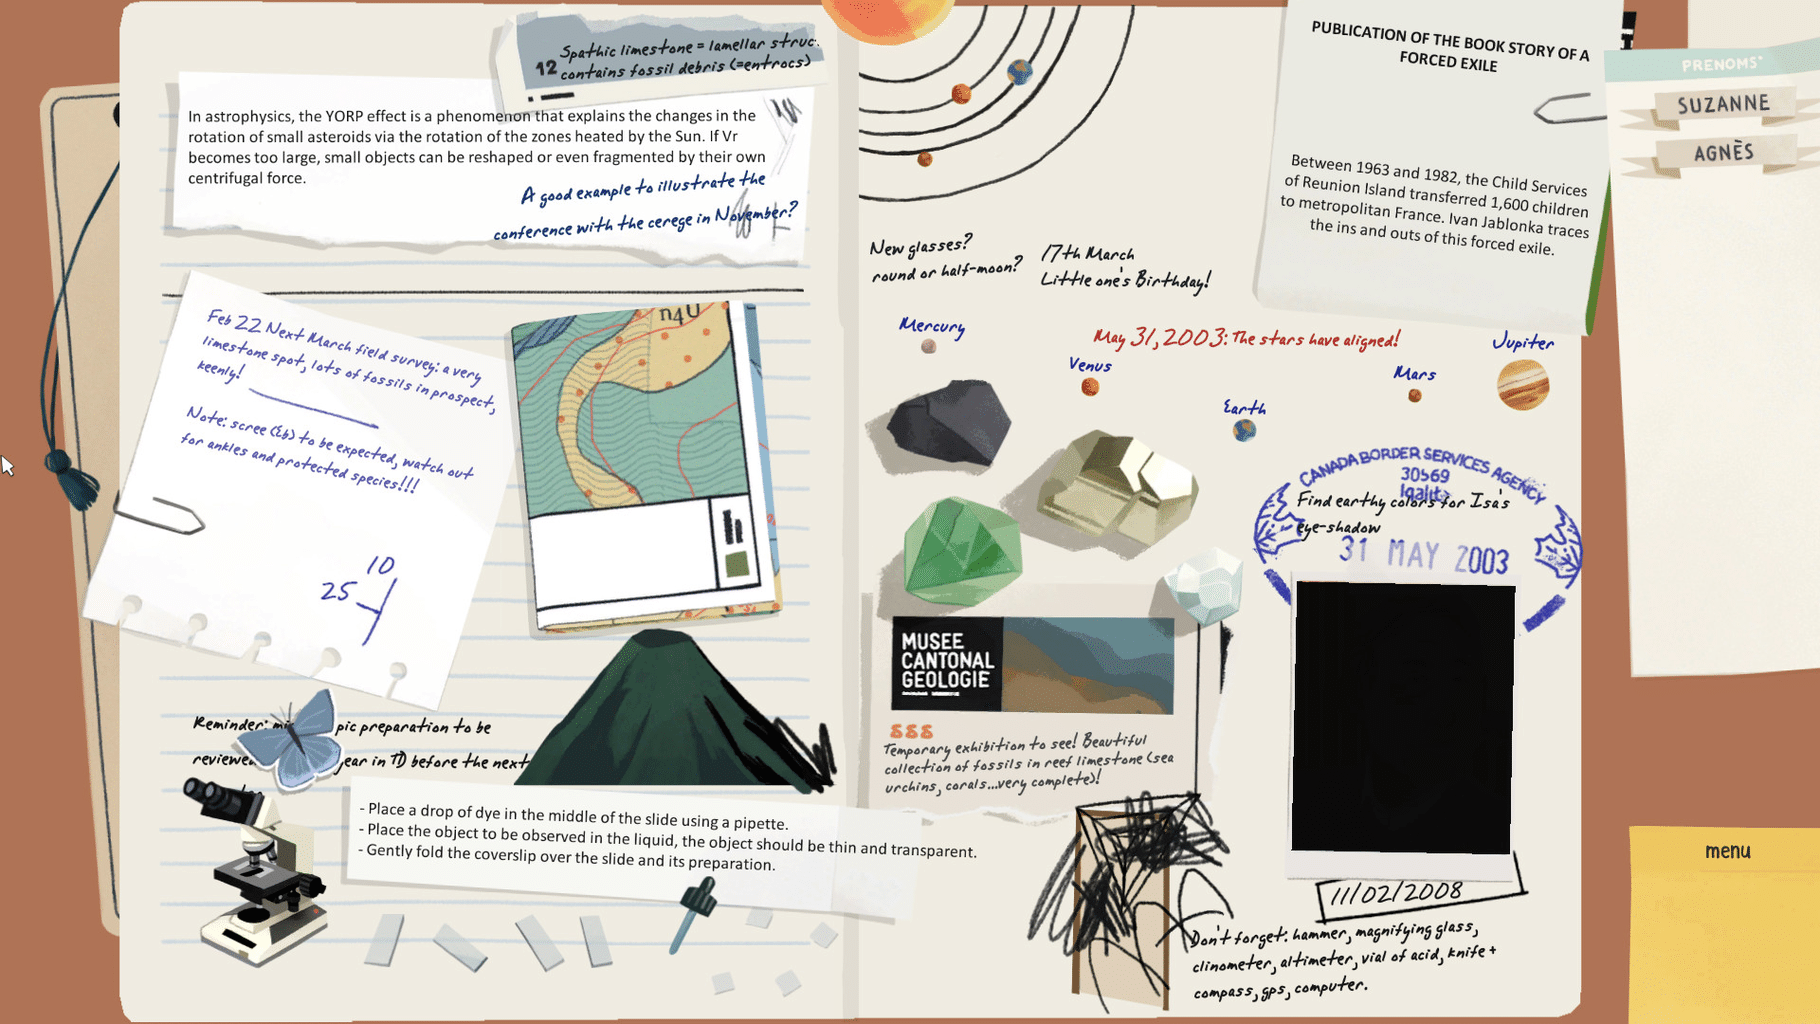 12 Spathic limestone = lamellar struc
contains fossil debris (=entrocs)
In astrophysics, the YORP effect is a phenomenon that explains the changes in the
rotation of small asteroids via the rotation of the zones heated by the Sun. If Vr
becomes too large, small objects can be reshaped or even fragmented by their own
centrifugal force.
A good example to illustrate the
conference with the cerege in November?
Feb 22 Next March field survey: a very
limestone spot, lots of fossils in prospect,
keenly!
Note: scree (Eb) to be expected, watch out
for ankles and protected species!!!
10
25
n4U
Reminder: pic preparation to be
reviewed ear in TD before the next
- Place a drop of dye in the middle of the slide using a pipette.
- Place the object to be observed in the liquid, the object should be thin and transparent.
- Gently fold the coverslip over the slide and its preparation.
New glasses?
round or half-moon?
17th March
Little one's Birthday!
May 31, 2003: The stars have aligned!
Mercury
Venus
Earth
Mars
Jupiter
CANADA BORDER SERVICES AGENCY
30569
Find earthy colors for Isa's
eye-shadow
31 MAY 2003
MUSEE
CANTONAL
GEOLOGIE
888
Temporary exhibition to see! Beautiful
collection of fossils in reef limestone (sea
urchins, corals...very complete)!
11/02/2008
Don't forget: hammer, magnifying glass,
clinometer, altimeter, vial of acid, knife +
compass, gps, computer.
PUBLICATION OF THE BOOK STORY OF A
FORCED EXILE
Between 1963 and 1982, the Child Services
of Reunion Island transferred 1,600 children
to metropolitan France. Ivan Jablonka traces
the ins and outs of this forced exile.
PRENOMS*
SUZANNE
AGNÈS
menu